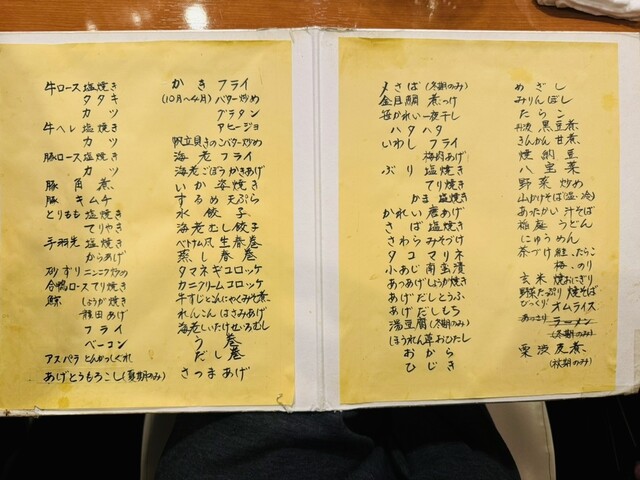 牛ロース 塩焼き
タタキ
カツ
牛ヘレ 塩焼き
カツ
豚ロース 塩焼き
カツ
豚角煮
豚キムチ
とりもも 塩焼き
てりやき
手羽先 塩焼き
からあげ
砂ずり ニンニク炒め
合鴨ロース てり焼き
鯨 しょうが焼き
竜田あげ
フライ
ベーコン
アスパラ とんかつ
あげとうもろこし(夏期のみ)
かきフライ
(10月〜4月) バター炒め
グラタン
アヒージョ
帆立貝きのこバター炒め
海老フライ
海老ごぼうかきあげ
いか姿焼き
するめ天ぷら
水餃子
海老むし餃子
ベトナム風生春巻
蒸し春巻
タマネギコロッケ
カニクリームコロッケ
牛すじこんにゃくみそ煮
れんこんはさみあげ
海老しいたけせいろむし
う巻
だし巻
さつまあげ
〆さば(冬期のみ)
金目鯛 煮つけ
笹かれい一夜干し
ハタハタ
いわし フライ
梅肉あげ
ぶり 塩焼き
てり焼き
かま 塩焼き
かれい唐あげ
さば 塩焼き
さわら みそづけ
タコ マリネ
小あじ 南蛮漬
あつあげしょうが焼き
あげだしとうふ
あげだしもち
湯豆腐(冬期のみ)
ほうれん草おひたし
おから
ひじき
めざし
みりんぼし
たらこ
丹波 黒豆煮
きんかん甘煮
焼納豆
八宝菜
野菜炒め
山かけそば(温・冷)
あったかい汁そば
稲庭うどん
にゅうめん
茶づけ 鮭.たらこ
梅.のり
玄米 焼おにぎり
野菜たっぷり焼そば
びっくり オムライス
あっさり ラーメン
(冬期のみ)
栗渋皮煮
(秋期のみ)